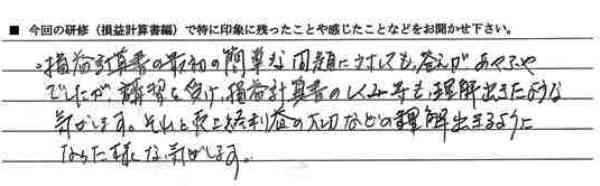 ■ 今回の研修（損益計算書編）で特に印象に残ったことや感じたことなどをお聞かせ下さい。
。損益計算書の最初の簡単な問題に対しても、答えがあやふや
でしたが、講習を受け、損益計算書のしくみ等も、理解出きたような
気がします。それと 経利益の大切などの理解出きるように
なった様な気がします。